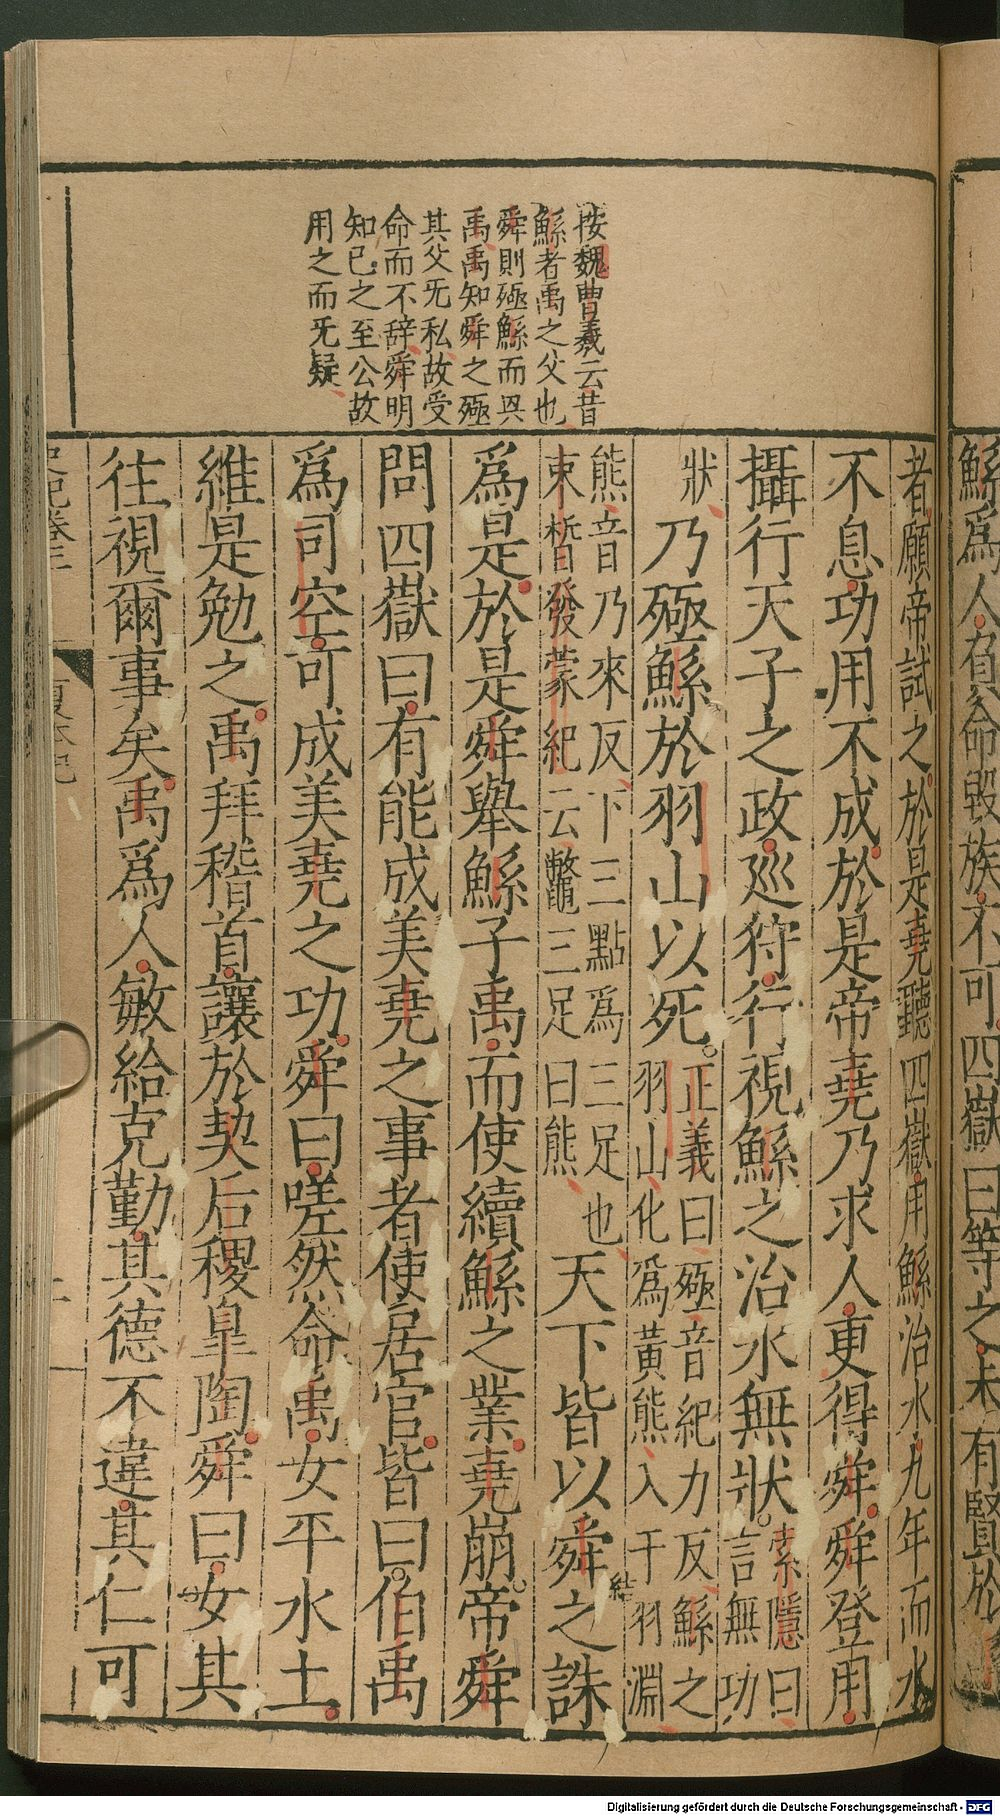 鯀爲人負命毀族不可四嶽曰等之未有賢於鯀
按魏曹羲云昔
鯀者禹之父也
舜則殛鯀而興
禹禹知舜之殛
其父旡私故受
命而不辞舜明
知已之至公故
用之而旡疑
者願帝試之於是堯聽四嶽用鯀治水九年而水
不息功用不成於是帝堯乃求人更得舜舜登用
攝行天子之政巡狩行視鯀之治水無狀索隱曰
言無功
狀乃殛鯀於羽山以死正義曰殛音紀力反鯀之
羽山化爲黃熊入于羽淵
熊音乃來反下三點爲三足也
束晳發蒙紀云鱉三足曰熊
天下皆以舜之誅
爲是於是舜舉鯀子禹而使續鯀之業堯崩帝舜
問四嶽曰有能成美堯之事者使居官皆曰伯禹
爲司空可成美堯之功舜曰嗟然命禹女平水土
維是勉之禹拜稽首讓於契后稷皐陶舜曰女其
往視爾事矣禹爲人敏給克勤其德不違其仁可
史記卷二
夏本紀
Digitalisierung gefördert durch die Deutsche Forschungsgemeinschaft - DFG